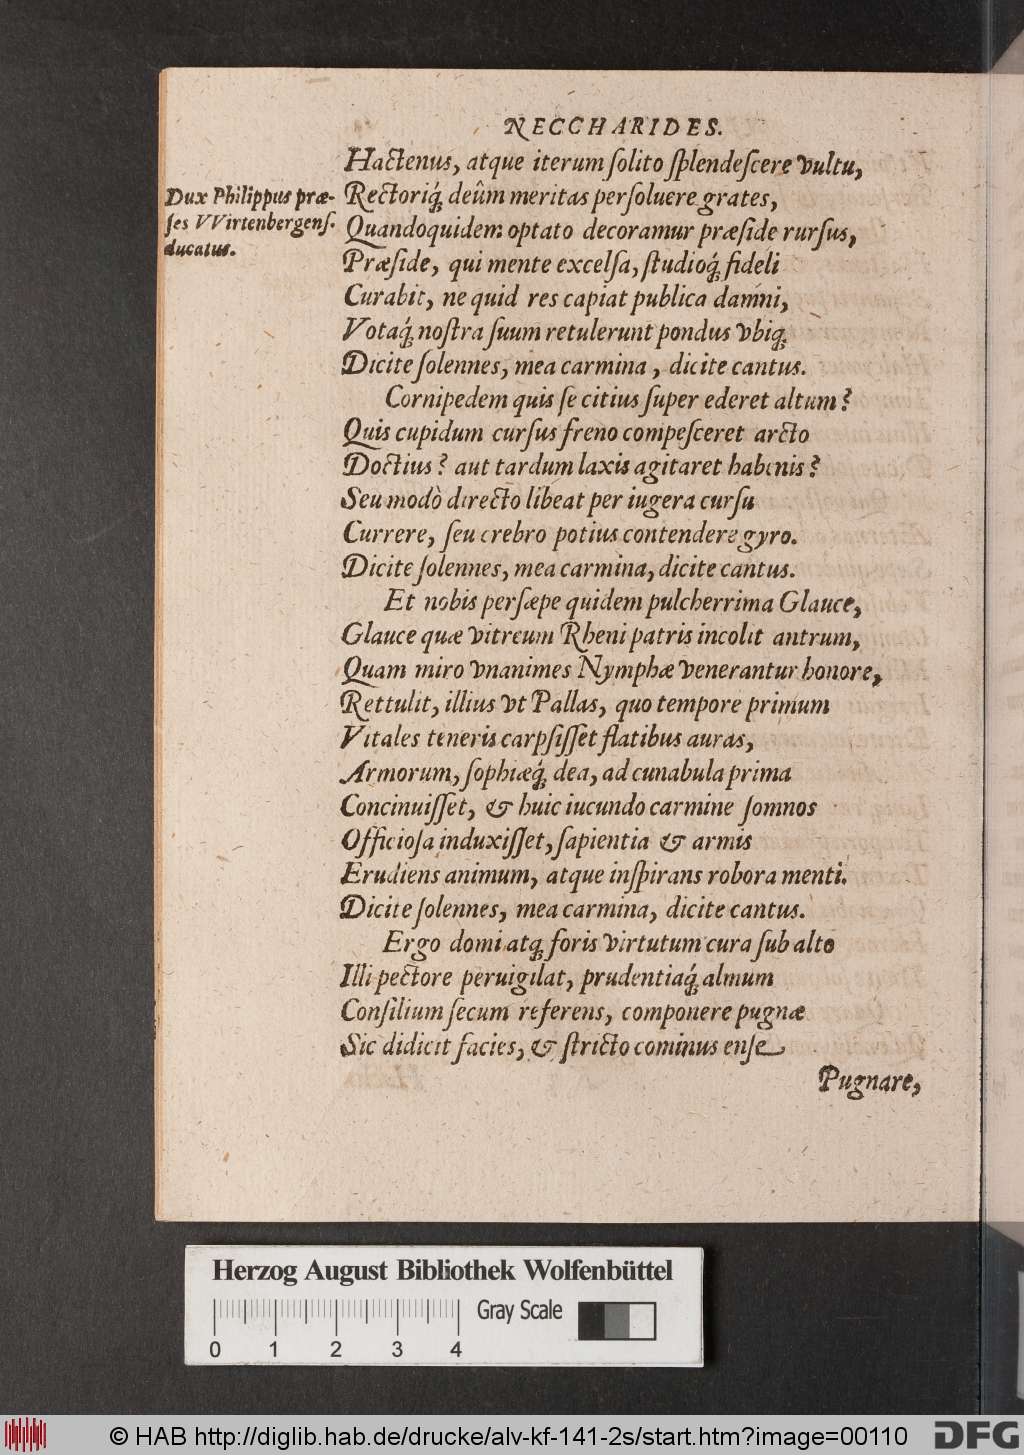 NECCHARIDES.
Hactenus, atque iterum ſolito ſplendeſcere vultu,
Dux Philippus præ-
ſes VVirtenbergenſ.
ducatus.
Rectoriq́; deûm meritas perſoluere grates,
Quandoquidem optato decoramur præſide rurſus,
Præſide, qui mente excelſa, ſtudioq́; fideli
Curabit, ne quid res capiat publica damni,
Votaq́; noſtra ſuum retulerunt pondus vbiq;
Dicite ſolennes, mea carmina, dicite cantus.
Cornipedem quis ſe citius ſuper ederet altum?
Quis cupidum curſus freno compeſceret arcto
Doctius? aut tardum laxis agitaret habenis?
Seu modò directo libeat per iugera curſu
Currere, ſeu crebro potius contendere gyro.
Dicite ſolennes, mea carmina, dicite cantus.
Et nobis perſæpe quidem pulcherrima Glauce,
Glauce quæ vitreum Rheni patris incolit antrum,
Quam miro vnanimes Nymphæ venerantur honore,
Rettulit, illius vt Pallas, quo tempore primum
Vitales teneris carpſiſſet flatibus auras,
Armorum, ſophiæq́; dea, ad cunabula prima
Concinuiſſet, & huic iucundo carmine ſomnos
Officioſa induxiſſet, ſapientia & armis
Erudiens animum, atque inſpirans robora menti.
Dicite ſolennes, mea carmina, dicite cantus.
Ergo domi atq; foris virtutum cura ſub alto
Illi pectore peruigilat, prudentiaq́; almum
Conſilium ſecum referens, componere pugnæ
Sic didicit facies, & ſtricto cominus enſe
Pugnare,
Herzog August Bibliothek Wolfenbüttel
Gray Scale
0 1 2 3 4
© HAB http://diglib.hab.de/drucke/alv-kf-141-2s/start.htm?image=00110
DFG